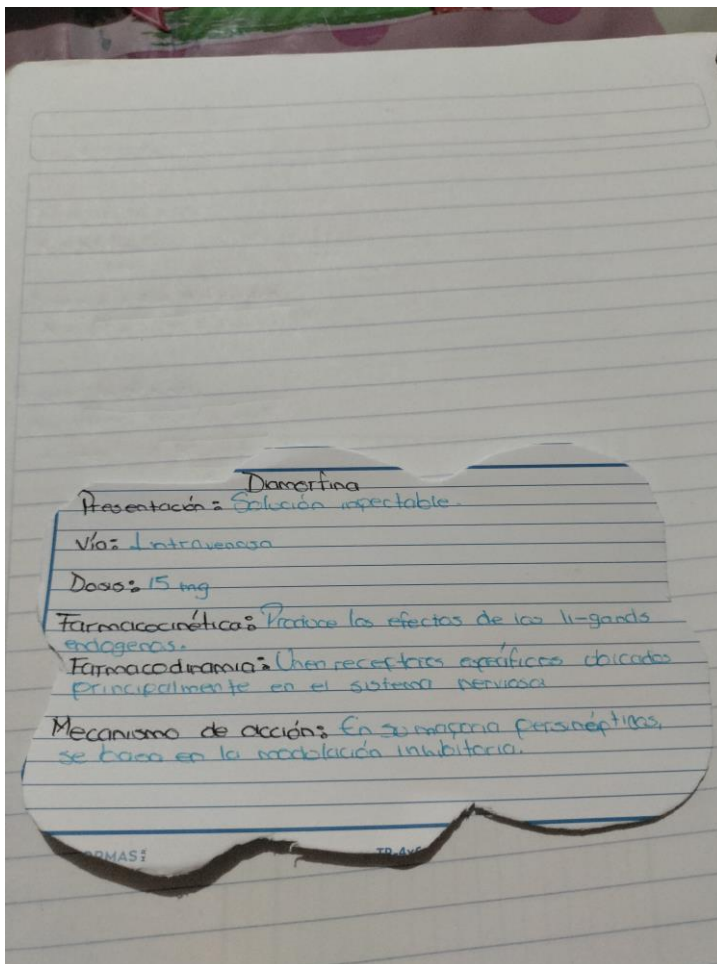 Diamorfina
Presentación: Solución inyectable.
Vía: Intravenosa
Dosis: 15 mg
Farmacocinética: Produce los efectos de los li-gands
endogenos.
Farmacodinamia: Unen receptores específicos ubicados
principalmente en el sistema nervioso
Mecanismo de acción: En su mayoria
se basa en la modulación inhibitoria.